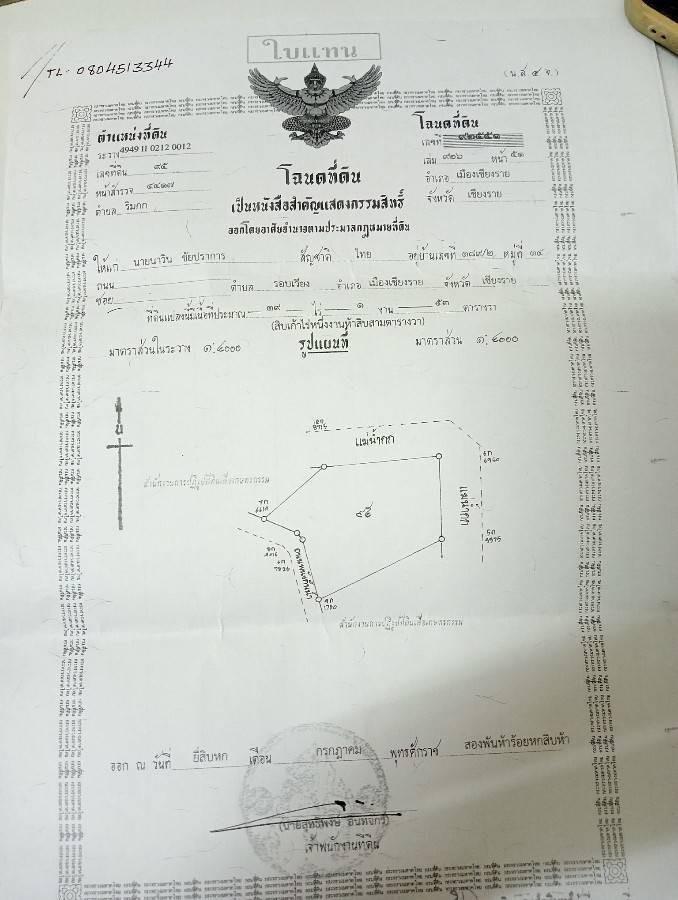 ใบแทน
TL. 0804513344
(น.ส. ๔ จ.)
ตำแหน่งที่ดิน
ระวาง 4949 II 0212 0012
เลขที่ดิน ๙๕
หน้าสำรวจ ๔๔๑๗
ตำบล ริมกก
โฉนดที่ดิน
เลขที่ ๑๒๕๕๑
เล่ม ๑๒๖ หน้า ๕๑
อำเภอ เมืองเชียงราย
จังหวัด เชียงราย
โฉนดที่ดิน
เป็นหนังสือสำคัญแสดงกรรมสิทธิ์
ออกโดยอาศัยอำนาจตามประมวลกฎหมายที่ดิน
ให้แก่ นายนาวิน ขัยปราการ สัญชาติ ไทย อยู่บ้านเลขที่ ๑๘๙/๒ หมู่ที่ ๑๔
ถนน ตำบล รอบเวียง อำเภอ เมืองเชียงราย จังหวัด เชียงราย
ซอย
ที่ดินแปลงนี้มีเนื้อที่ประมาณ ๑๙ ไร่ ๑ งาน ๕๓ ตารางวา
(สิบเก้าไร่หนึ่งงานห้าสิบสามตารางวา)
มาตราส่วนในระวาง ๑:๔๐๐๐ รูปแผนที่ มาตราส่วน ๑:๔๐๐๐
น
แม่น้ำกก
สำนักงานการปฏิรูปที่ดินเพื่อเกษตรกรรม
๙๕
แม่น้ำกก
ถนนพนังกั้นน้ำ
สำนักงานการปฏิรูปที่ดินเพื่อเกษตรกรรม
ออก ณ วันที่ ยี่สิบหก เดือน กรกฎาคม พุทธศักราช สองพันห้าร้อยหกสิบห้า
(นายสุทธิพงษ์ อินทจักร์)
เจ้าพนักงานที่ดิน